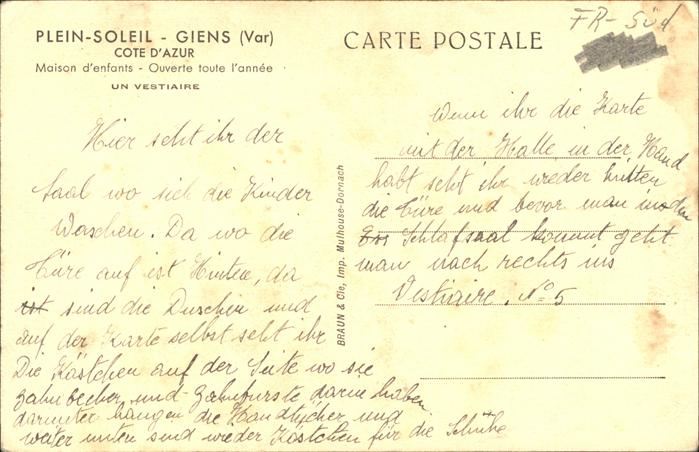 PLEIN-SOLEIL - GIENS (Var)
COTE D'AZUR
Maison d'enfants - Ouverte toute l'année
UN VESTIAIRE
CARTE POSTALE
FR-Süd
Hier seht ihr der
Saal wo sich die Kinder
Waschen. Da wo die
Türe auf ist Hinten, da
ist sind die Duschen und
auf der Karte selbst seht ihr
Die Kästchen auf der Seite wo sie
Zahnbecher und Zahnburste darin haben
darunter hangen die Handtücher und
weiter unten sind wieder Köstchen für die Schühe
BRAUN & Cie, Imp. Mulhouse-Dornach
Wenn ihr die Karte
mit der Halle in der Hand
habt seht ihr wieder hinten
die Türe und bevor man in den
Schlafsaal kommt geht
man nach rechts ins
Vestiaire. No 5